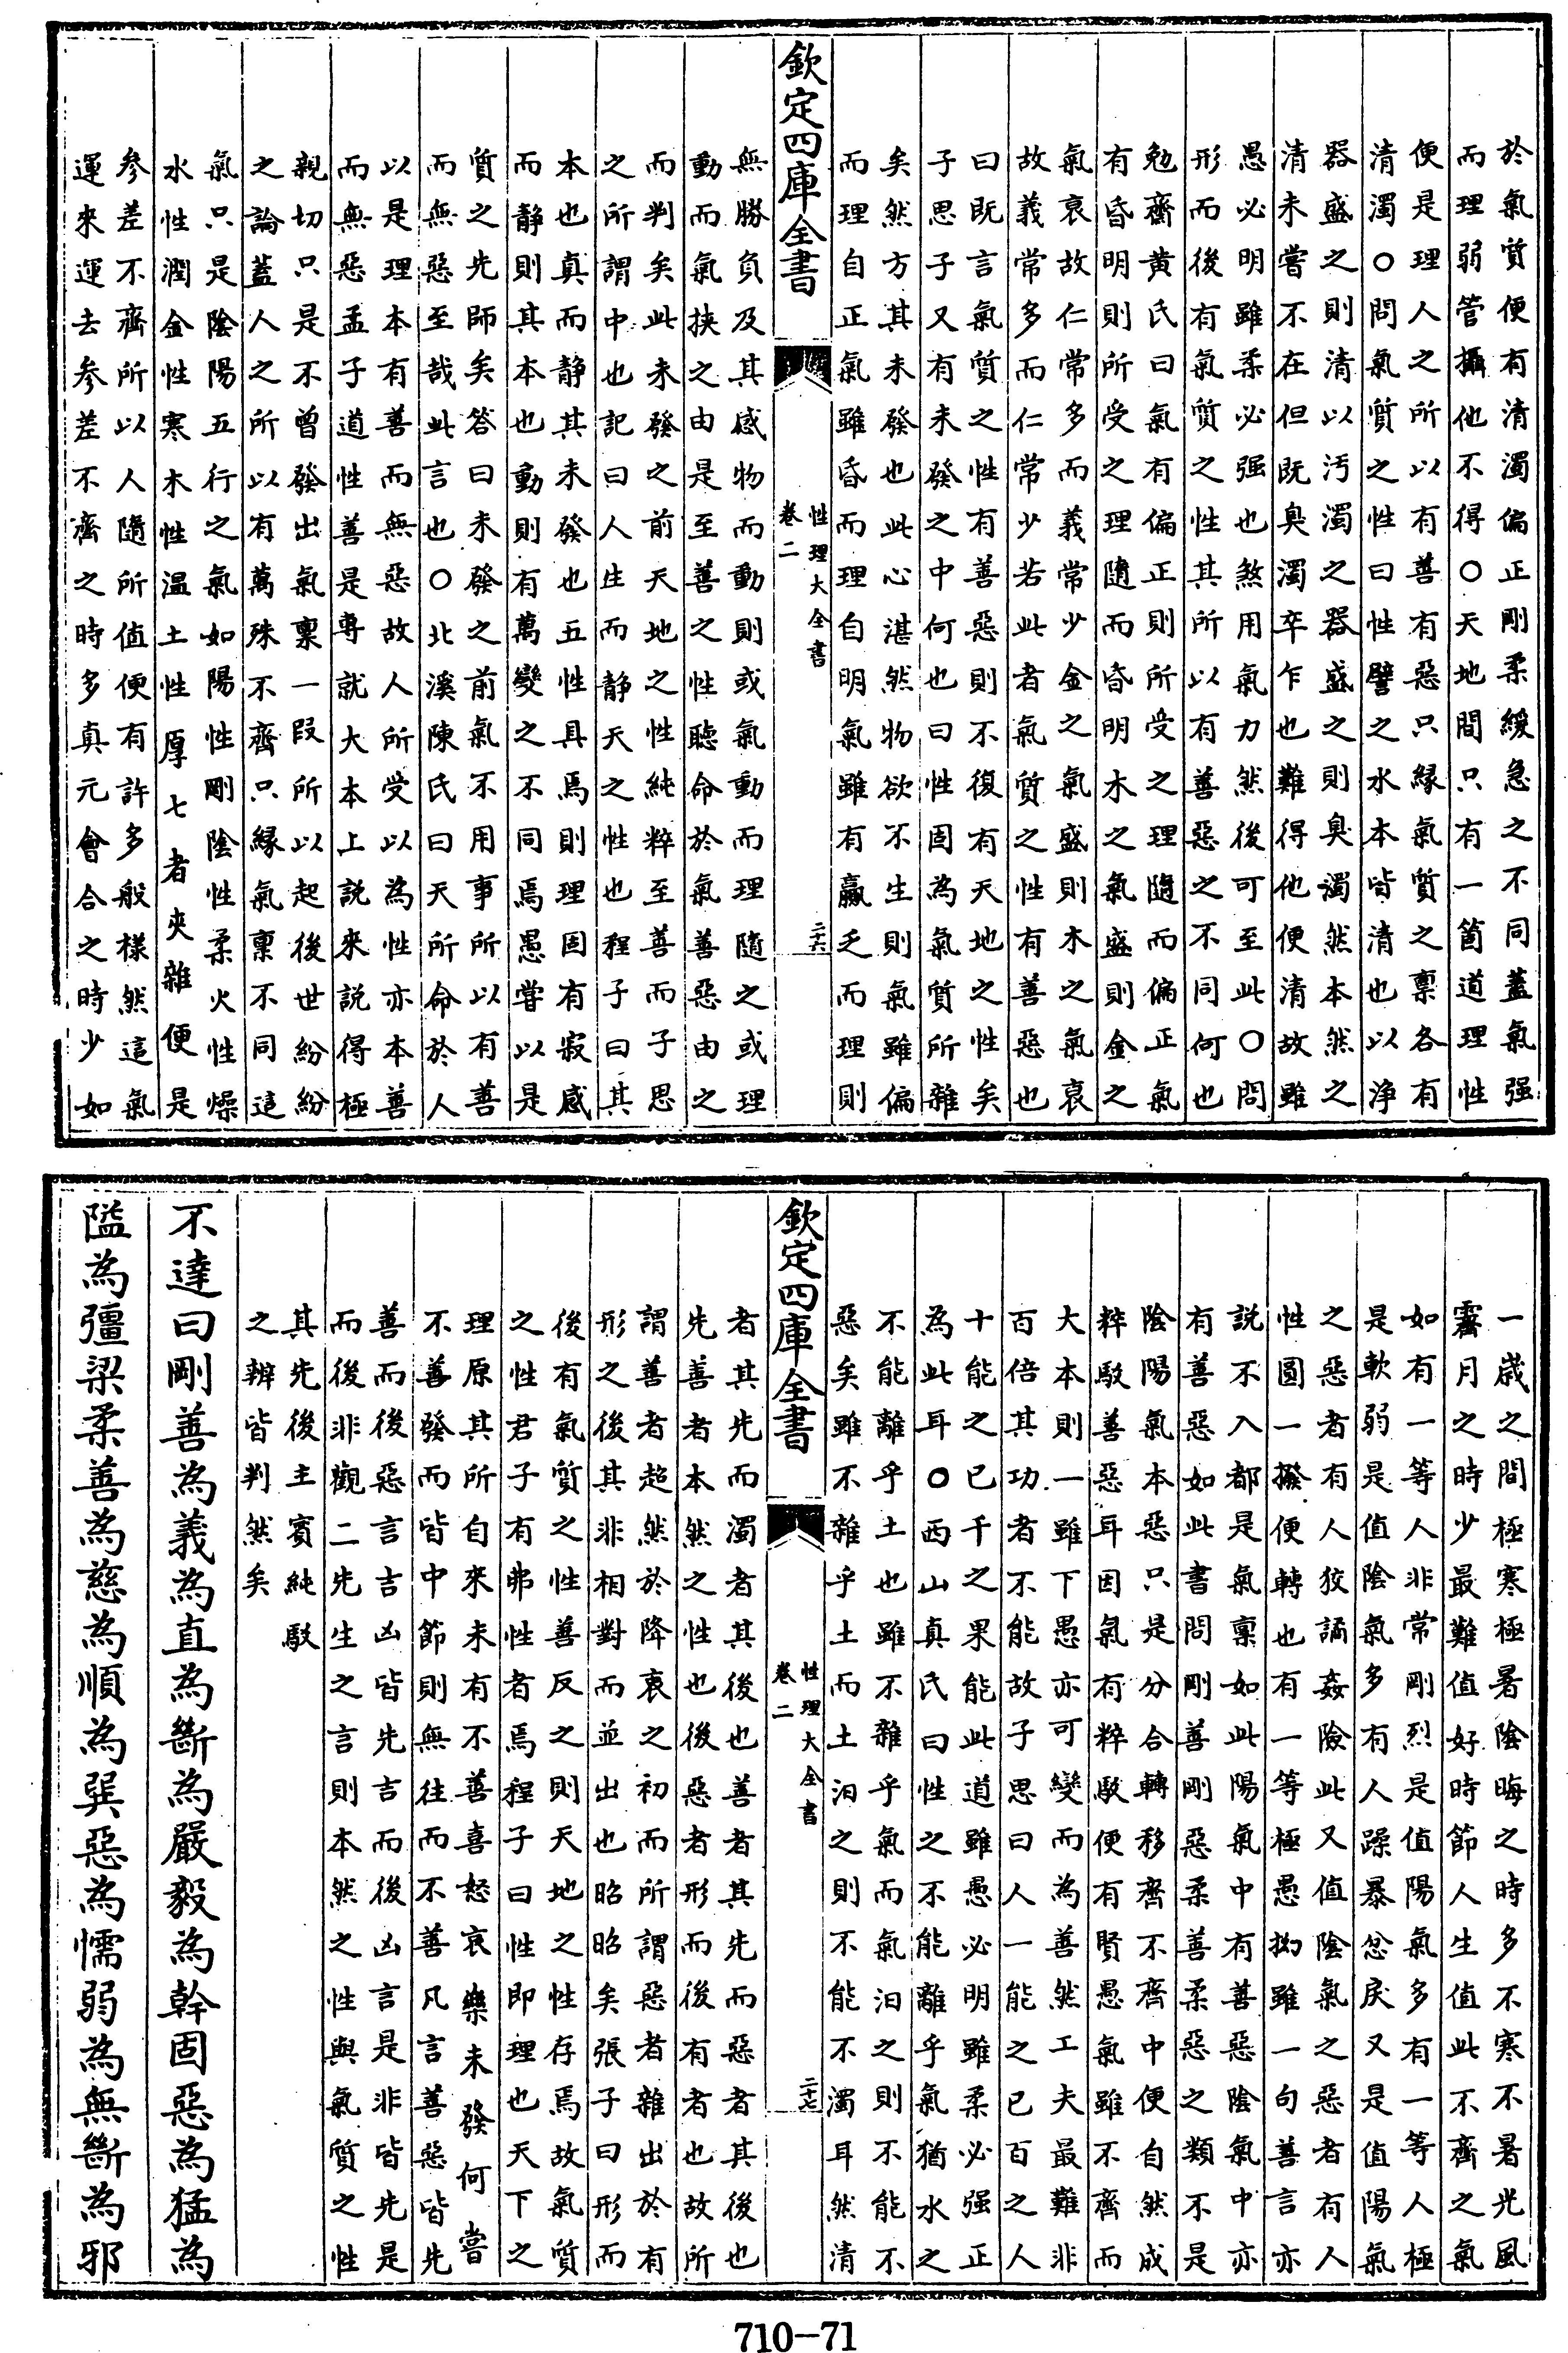 於氣質便有清濁偏正剛柔緩急之不同蓋氣强
而理弱管攝他不得○天地間只有一箇道理性
便是理人之所以有善有惡只縁氣質之禀各有
清濁○問氣質之性曰性譬之水本皆清也以淨
器盛之則清以汚濁之器盛之則臭濁然本然之
清未嘗不在但既臭濁卒乍也難得他便清故雖
愚必明雖柔必强也煞用氣力然後可至此○問
形而後有氣質之性其所以有善惡之不同何也
勉齋黄氏曰氣有偏正則所受之理隨而偏正氣
有昏明則所受之理隨而昏明木之氣盛則金之
氣衰故仁常多而義常少金之氣盛則木之氣衰
故義常多而仁常少若此者氣質之性有善惡也
曰既言氣質之性有善惡則不復有天地之性矣
子思子又有未發之中何也曰性固為氣質所雜
矣然方其未發也此心湛然物欲不生則氣雖偏
而理自正氣雖昏而理自明氣雖有贏乏而理則
欽定四庫全書
性理大全書
卷二
二十六
無勝負及其感物而動則或氣動而理隨之或理
動而氣挟之由是至善之性聽命於氣善惡由之
而判矣此未發之前天地之性純粹至善而子思
之所謂中也記曰人生而静天之性也程子曰其
本也真而静其未發也五性具焉則理固有寂感
而静則其本也動則有萬變之不同焉愚嘗以是
質之先師矣答曰未發之前氣不用事所以有善
而無惡至哉此言也○北溪陳氏曰天所命於人
以是理本有善而無惡故人所受以為性亦本善
而無惡孟子道性善是専就大本上説來説得極
親切只是不曾發出氣禀一段所以起後世紛紛
之論蓋人之所以有萬殊不齊只縁氣禀不同這
氣只是陰陽五行之氣如陽性剛陰性柔火性燥
水性潤金性寒木性温土性厚七者夾雜便是
參差不齊所以人隨所值便有許多般樣然這氣
運來運去參差不齊之時多真元會合之時少如
一歲之間極寒極暑陰晦之時多不寒不暑光風
霽月之時少最難值好時節人生值此不齊之氣
如有一等人非常剛烈是值陽氣多有一等人極
是軟弱是值陰氣多有人躁暴忿戾又是值陽氣
之惡者有人狡譎姦險此又值陰氣之惡者有人
性圓一撥便轉也有一等極愚拗雖一句善言亦
説不入都是氣禀如此陽氣中有善惡陰氣中亦
有善惡如此書問剛善剛惡柔善柔惡之類不是
陰陽氣本惡只是分合轉移齊不齊中便自然成
粹駁善惡耳因氣有粹駁便有賢愚氣雖不齊而
大本則一雖下愚亦可變而為善然工夫最難非
百倍其功者不能故子思曰人一能之已百之人
十能之已千之果能此道雖愚必明雖柔必强正
為此耳○西山真氏曰性之不能離乎氣猶水之
不能離乎土也雖不雜乎氣而氣汩之則不能不
惡矣雖不雜乎土而土汩之則不能不濁耳然清
欽定四庫全書
性理大全書
卷二
二十七
者其先而濁者其後也善者其先而惡者其後也
先善者本然之性也後惡者形而後有者也故所
謂善者超然於降衷之初而所謂惡者雜出於有
形之後其非相對而並出也昭昭矣張子曰形而
後有氣質之性善反之則天地之性存焉故氣質
之性君子有弗性者焉程子曰性即理也天下之
理原其所自來未有不善喜怒哀樂未發何嘗
不善發而皆中節則無往而不善凡言善惡皆先
善而後惡言吉凶皆先吉而後凶言是非皆先是
而後非觀二先生之言則本然之性與氣質之性
其先後主賓純駁
之辨皆判然矣
不達曰剛善為義為直為斷為嚴毅為幹固惡為猛為
隘為彊梁柔善為慈為順為巽惡為懦弱為無斷為邪
710-71